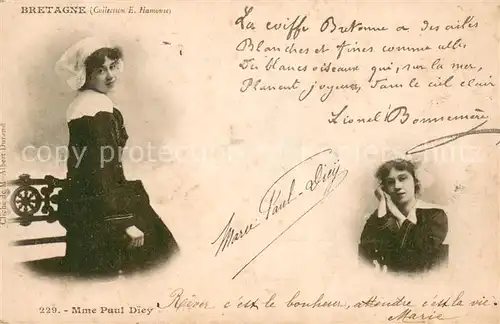 BRETAGNE (Collection E. Hamonic)
La coiffe Bretonne a des ailes
Blanches et fines comme celles
Du blancs oiseaux qui, sur la mer,
Planent, joyeux, dans le ciel clair
Lionel Bonnemère
Cliché de M. Albert Durand
Marie Paul-Diey
229. - Mme Paul Diey
Rêver c'est le bonheur, attendre c'est la vie.
Marie